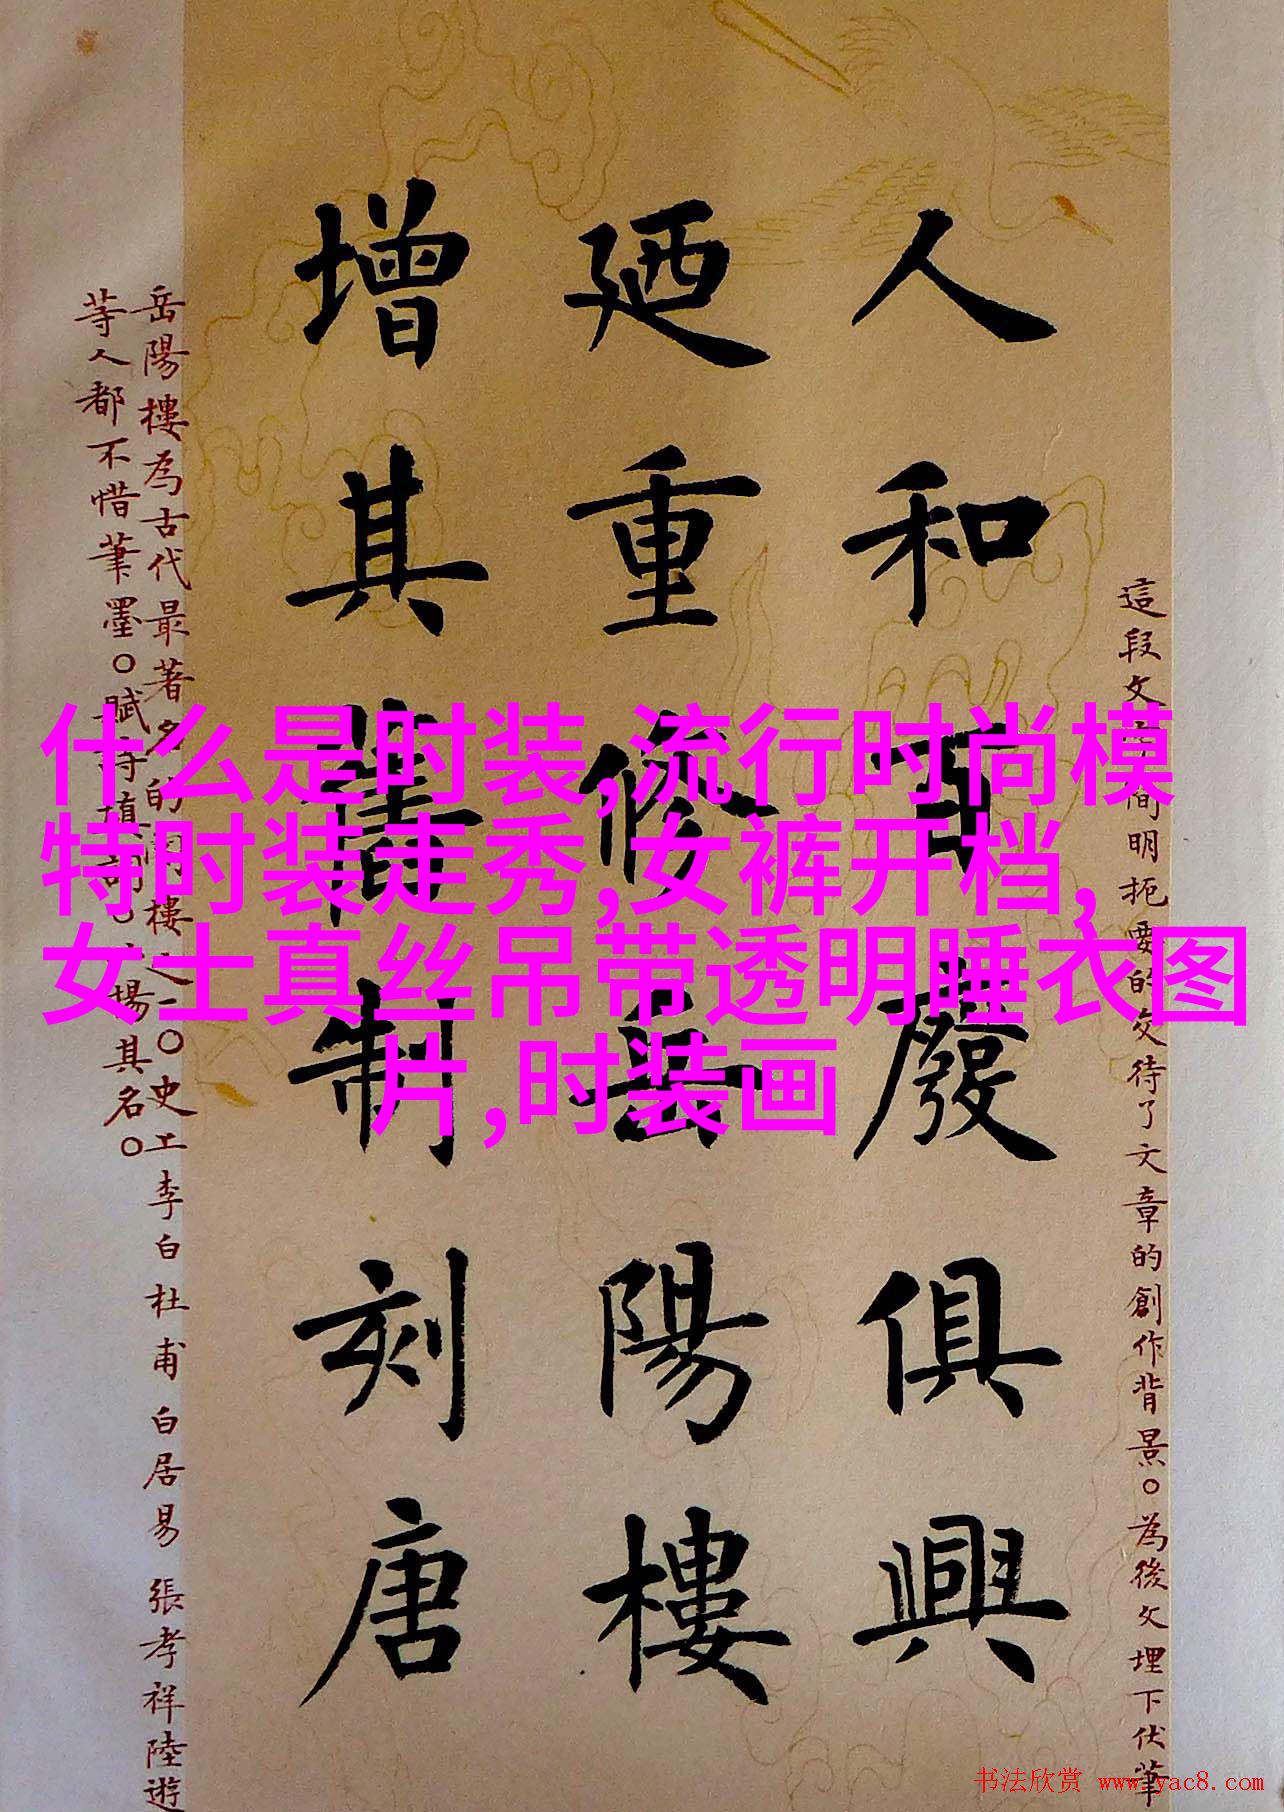 什么是时装,流行时尚模
特时装走秀,女裤开档,
女士真丝吊带透明睡衣图
片,时装画
這段文簡明扼要的交待了文章的創作背景。為後文埋下伏筆
人和百廢俱興
廼重修岳陽樓
增其舊制刻唐
岳陽樓為古代最著名的樓之一。史上李白杜甫白居易張孝祥陸遊
等人都不惜筆墨。賦詩填詞。揚其名。
书法欣赏 www.yac8.com